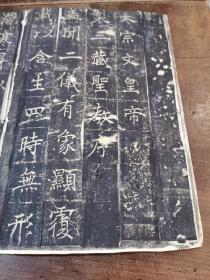 太宗文皇帝
製三藏聖教序
蓋聞二儀有象顯覆
載以含生四時無形
潛寒暑